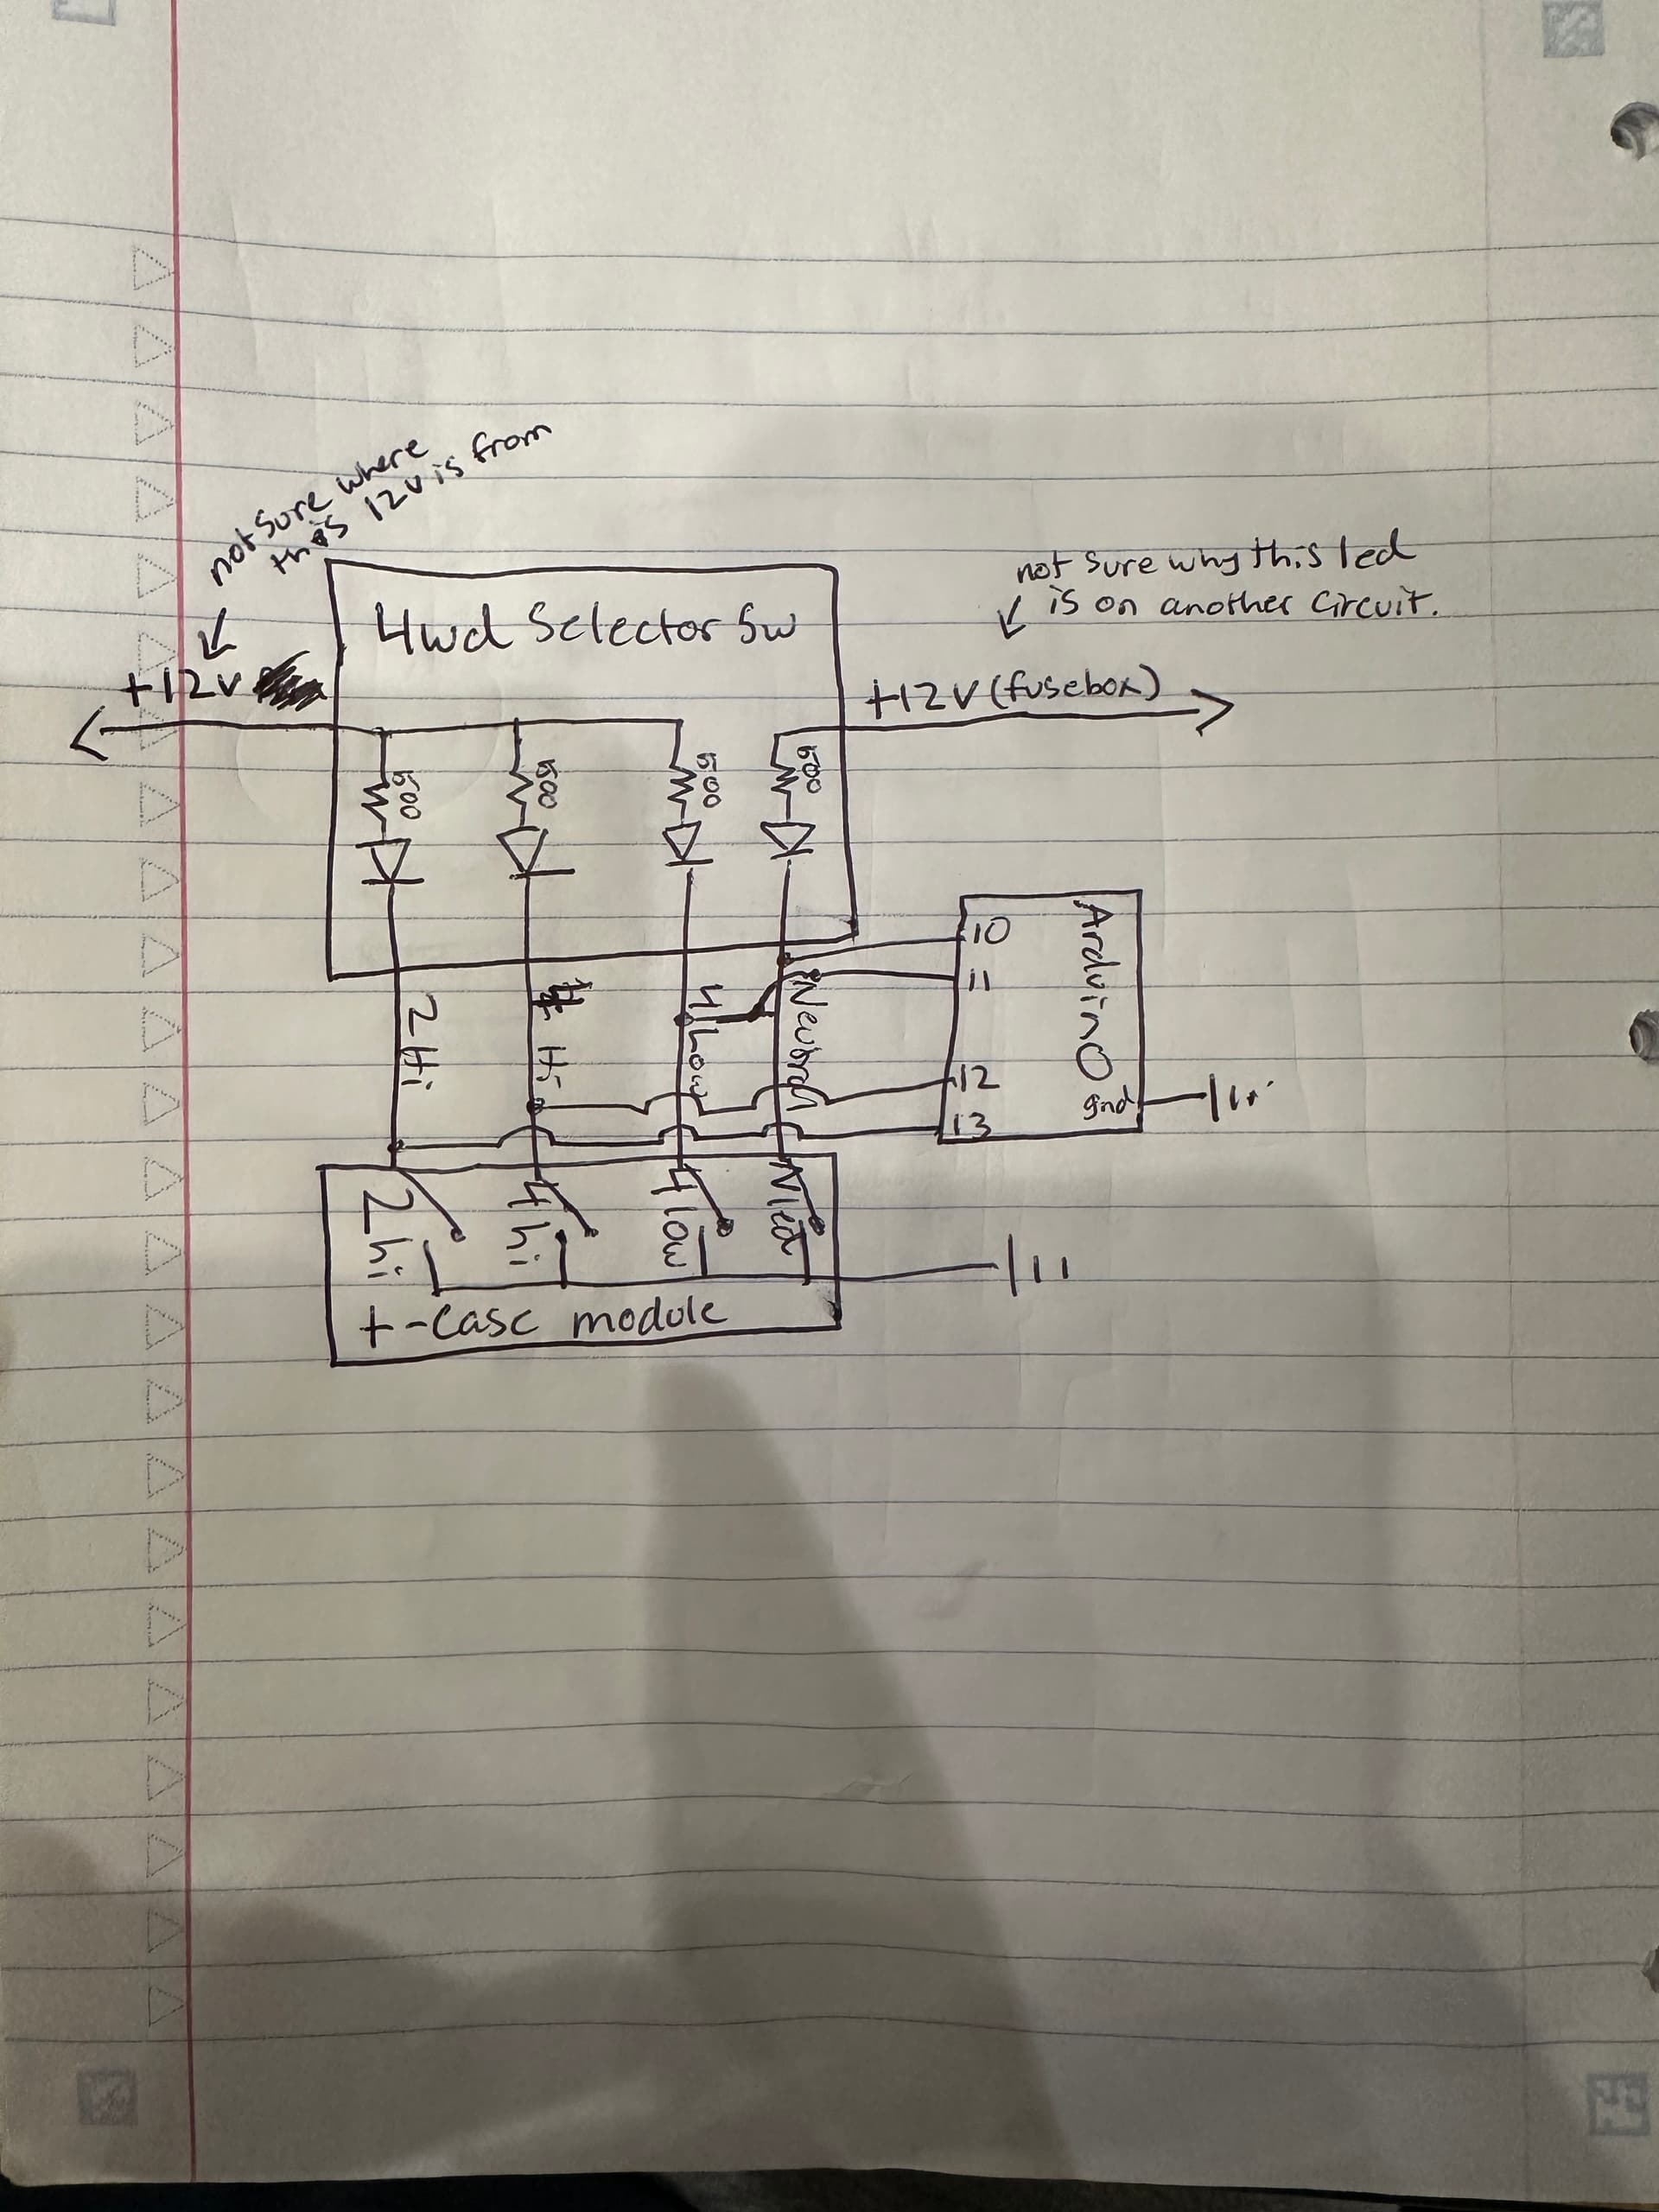 not sure where
this 12v is from
not sure why this led
is on another circuit.
4wd Selector Sw
+12v
+12v (fusebox)
500
500
500
500
Arduino
10
11
12
13
gnd
2 Hi
Hi
4 Low
Neutral
2hi
4hi
4low
N led
t-case module